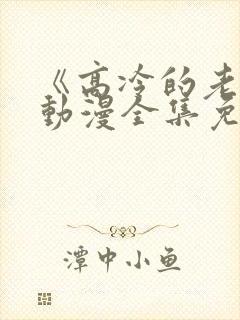 《高冷的老
動漫全集免
潭中小鱼